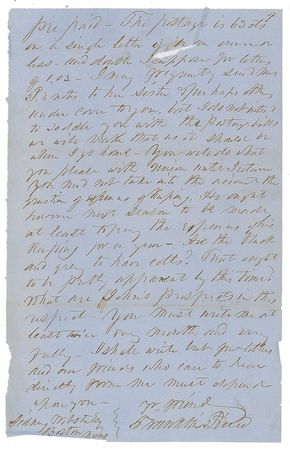 pre paid - The postage is 63 cts
on a single letter of an ounce or
less - and double I suppose for letters
of 1,02 - I may frequently send Mrs
P's notes to her Sister & perhaps others
under cover to you, but I do not intend
to saddle you with the postage bills
we will make that as it should be
when I go home - You will do what
you please with Union until I return
You need not take into the account the
question of expense of keeping. He ought
however next season to be made
at least to pay the expenses of his
keeping for a year - Are the black
and grey to have colts? That ought
to be pretty apparent by this time
What are John's prospects in this
respect - You must write me at
least twice every month and very
fully - I shall write but few letters
and our friends who care to hear
directly from me must depend
upon you -
Yr. friend
Franklin Pierce
Sidney Webster Esq
Boston Mass